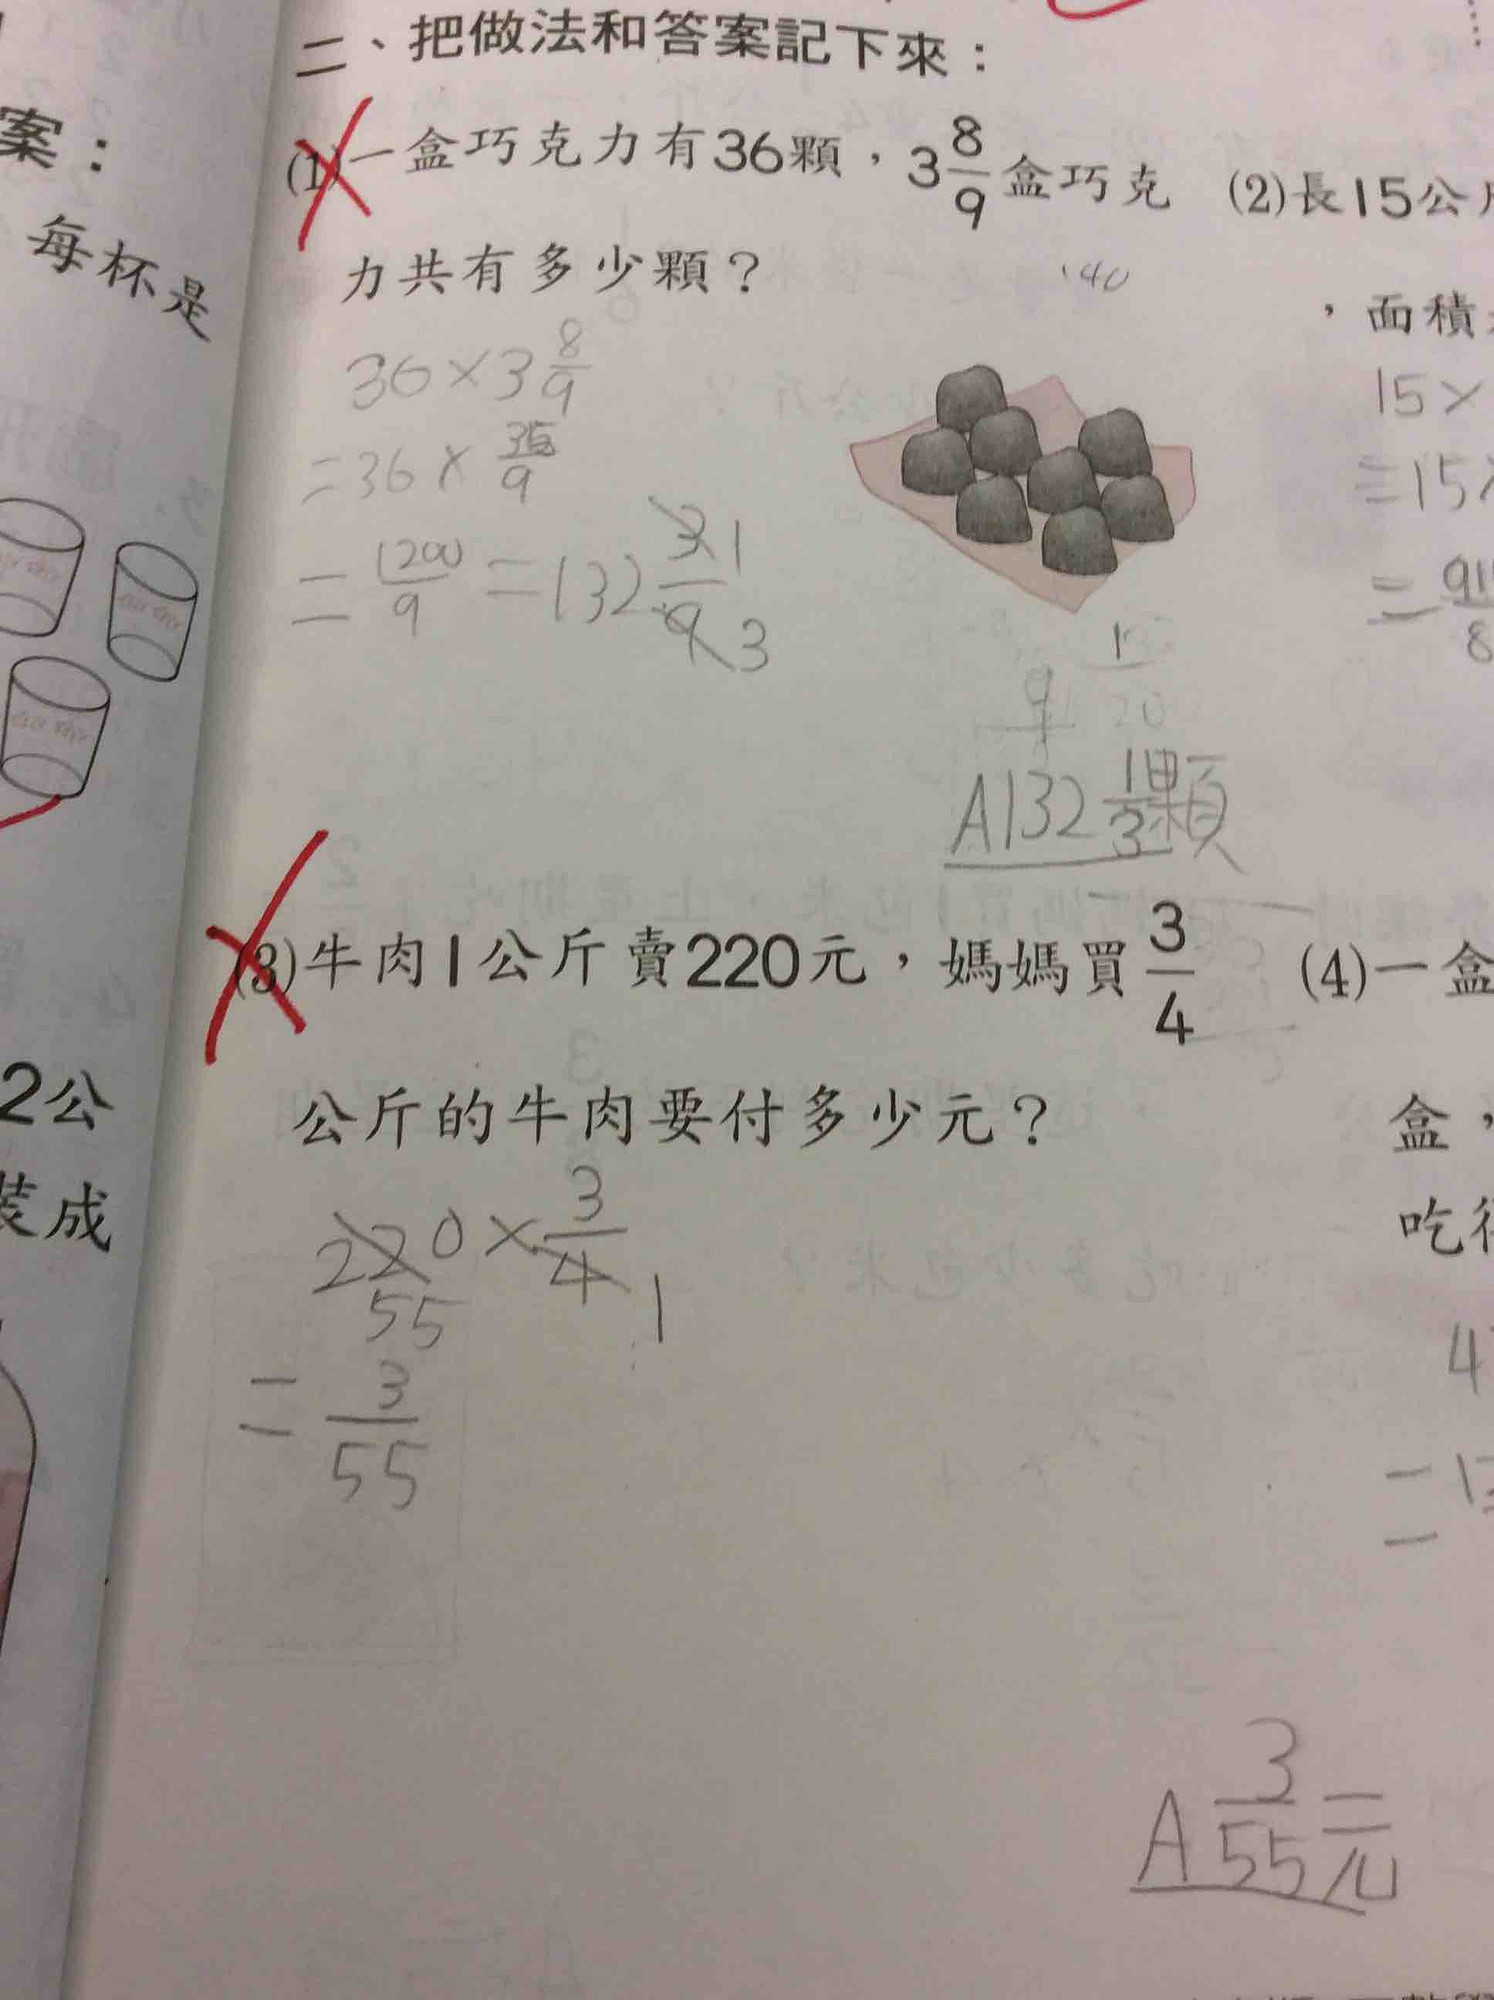 案：
每杯是
2公
裝成
二、把做法和答案記下來：
(1)一盒巧克力有36顆，3 8/9 盒巧克
力共有多少顆？
36×3 8/9
=36×35/9
=1200/9=132 3/9 1/3
A132 1/3顆
(2)長15公
，面積
15×
=15×
(3)牛肉1公斤賣220元，媽媽買 3/4
公斤的牛肉要付多少元？
220×3/4
55 1
=3/55
A 3/55元
(4)一盒
盒，
吃